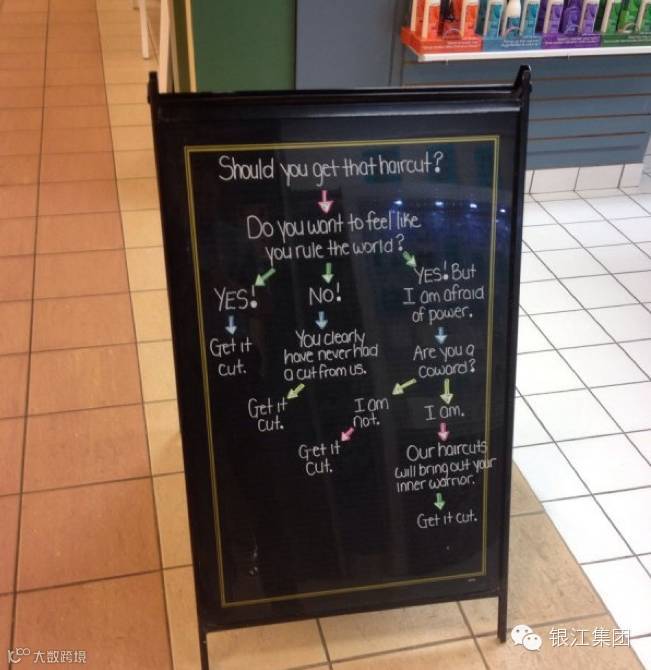 Should you get that haircut?
Do you want to feel like
you rule the world?
YES!
Get it
cut.
No!
You clearly
have never had
a cut from us.
Get it
cut.
YES! But
I am afraid
of power.
Are you a
coward?
I am
not.
Get it
cut.
I am.
Our haircuts
will bring out your
inner warrior.
Get it cut.
大数跨境
银江集团